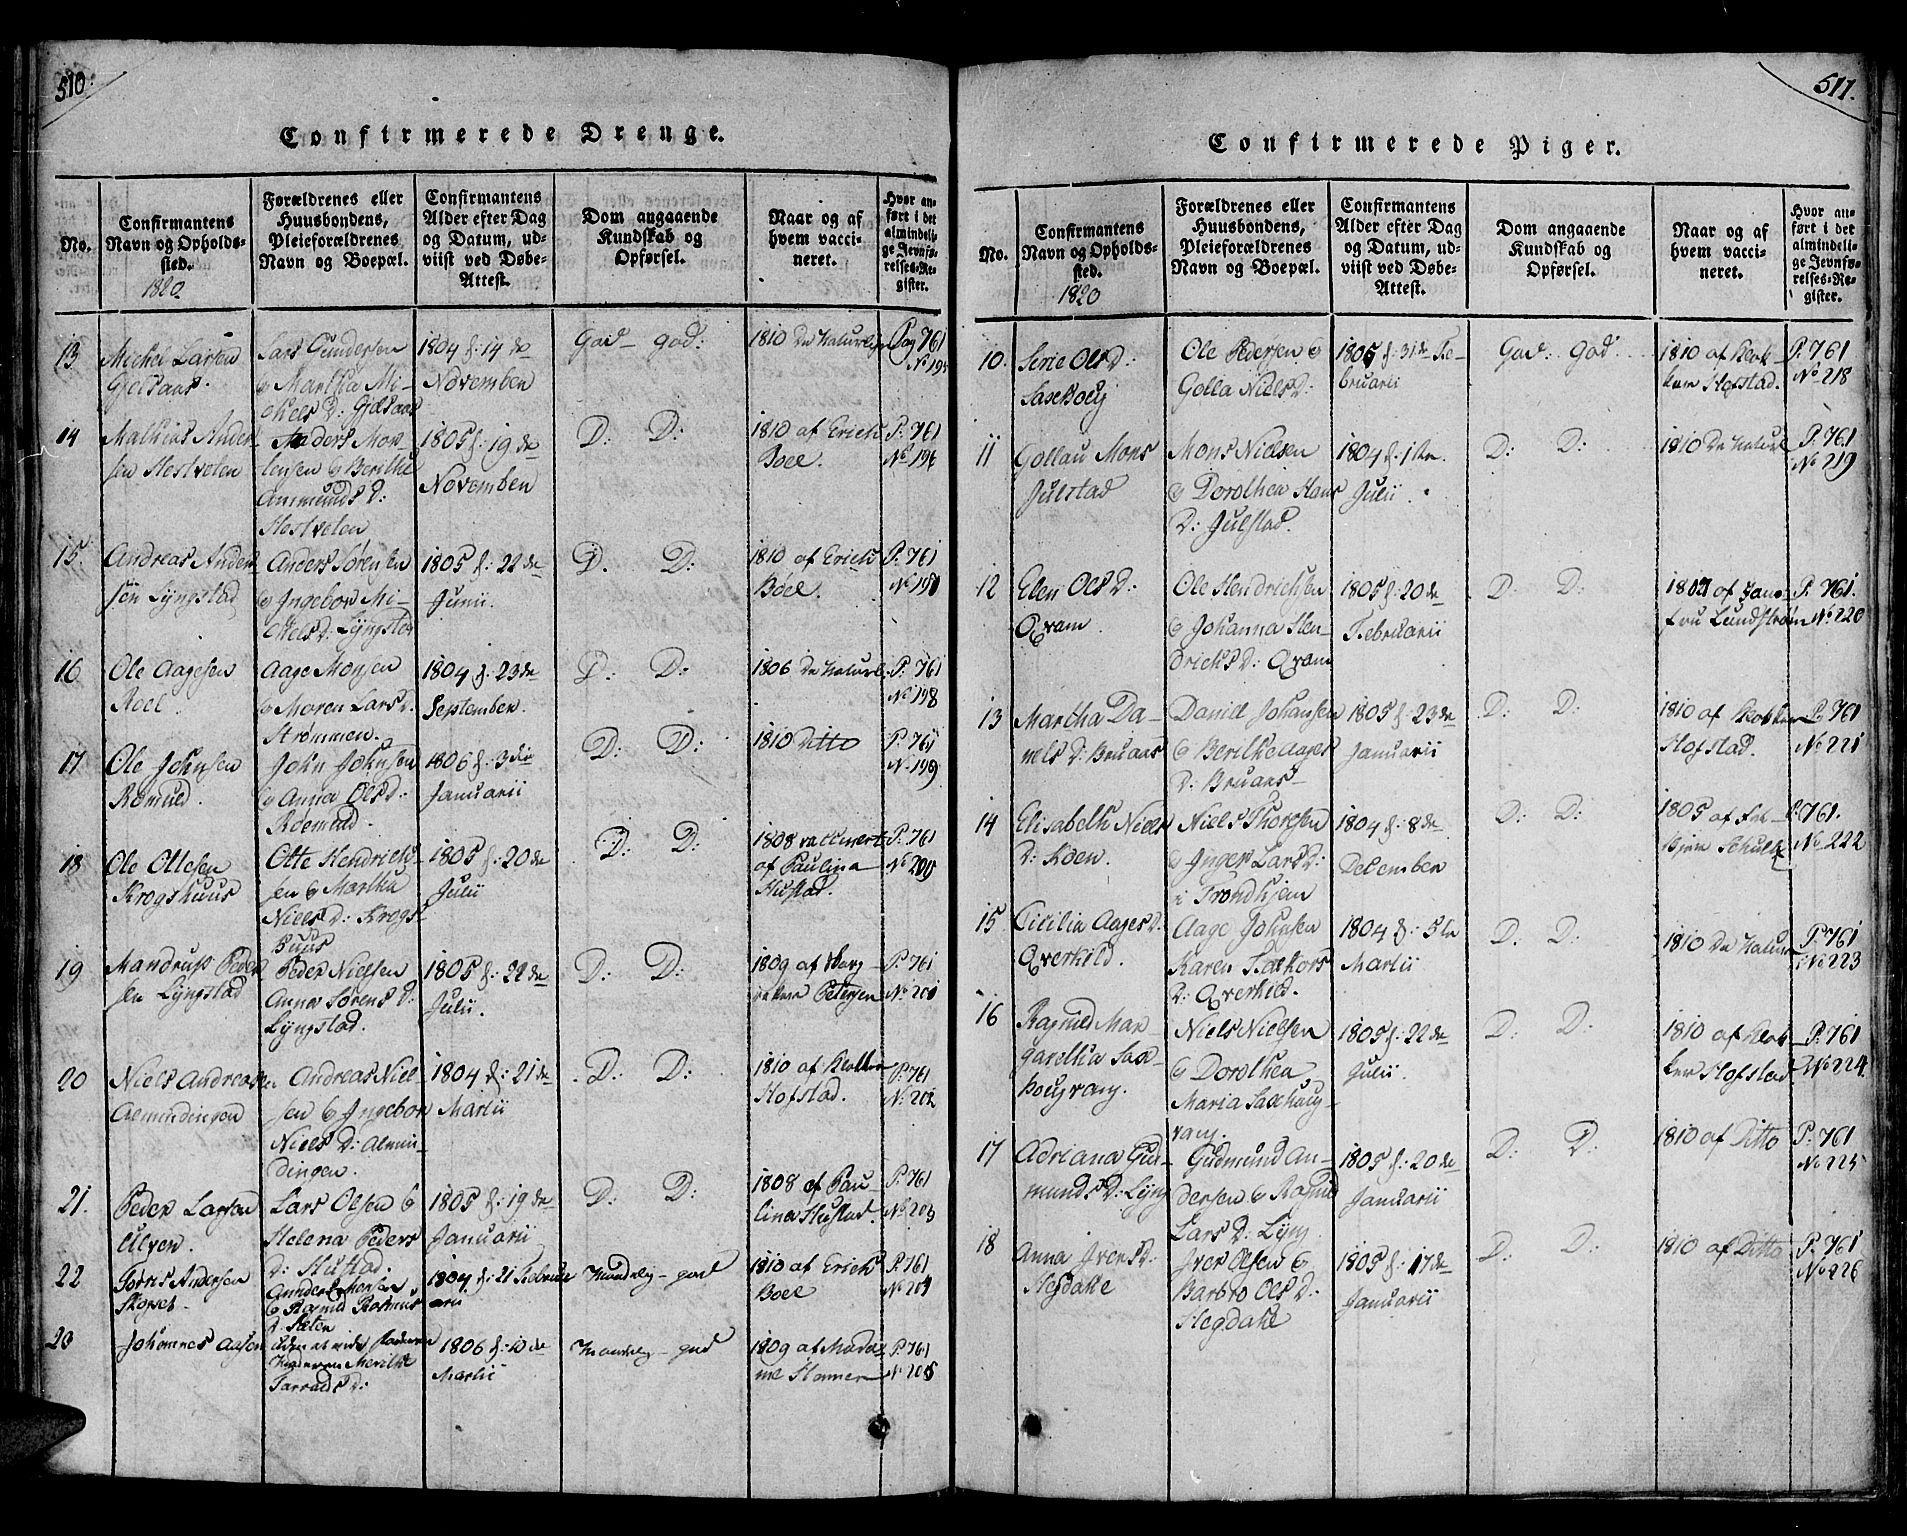 510.
Confirmerede Drenge.
No.
Confirmantens
Navn og Opholds-
sted.
1820.
Forældrenes eller
Huusbondens,
Pleieforældrenes
Navn og Boepæl.
Confirmantens
Alder efter Dag
og Datum, ud-
viist ved Døbe-
Attest.
Dom angaaende
Kundskab og
Opførsel.
Naar og af
hvem vacci-
neret.
Hvor an-
ført i det
almindeli-
ge Jevnfø-
relses-Re-
gister.
13
Michel Larsen
Lars Gundersen
& Martha Mi-
chels D:
1804 d: 14 de
November
God - god:
1810
Pag 761
14
Mathias Ander-
sen Hestveten
Anders Mor-
tensen & Berithe
Ammunds D:
Hestveten
1805 d: 19 de
November
D: D:
1810 af Erich
Boel.
P: 761
No 196
15.
Andreas Ander-
sen Lÿngstad
Anders Sørensen
& Ingebor Mi-
chels D: Lÿngstad
1805 d: 22 de
Junii.
D. D:
1810 af Erich
Boel.
P: 761
No 197
16
Ole Aagesen
Roel.
Aage Monsen
& Maren Lars D.
Strømmen.
1804 d: 23 de
September.
D: D:
1806 De Naturl.
P: 761
No 198
17
Ole Johnsen
Roemuld.
John Johnsen
& Anna Ols D:
1806 d: 3 die
Januarii
D: D:
1810 Ditto
P: 761
No 199
18
Ole Ottesen
Krogshuus
Otte Hendrich-
sen & Martha
Niels D: Krogs-
huus
1805 d: 20 de
Julii
D: D:
1808 vaccinert
af Paulina
Hustad.
P: 761
No 200
19
Mandrup Peder-
sen Lÿngstad
Peder Nielsen
Anna Sørens D:
Lÿngstad.
1805 d: 22 de
Julii.
D: D:
1809 af
Petersen
P: 761
No 201
20
Niels Andreasen
Almindingen
Andreas Niel-
sen & Ingebor
Niels D: Almin-
dingen.
1804 d: 21 de
Martii
D: D:
1810 af Klokker
Hofstad.
P: 761
No 202
21.
Peder Larsen
Ulven.
Lars Olsen &
Helena Peders
D: Hustad.
1805 d: 19 de
Januarii
D: D:
1808 af Pau-
lina Hustad.
P: 761
No 203
22
Andersen
Anders
& Ragnild Rasmus
D: Sæten
1804 d: 21 Februar-
arii
Maadelig - god
1810 af Erich
Boel
P: 761
No 204
23
Johannes Aasen
Moderen
Marithe
D:
1806 d: 10 de
Martii
Maadelig - god
1809 af Mada-
me
P: 761
No 205
511.
Confirmerede Piger.
No.
Confirmantens
Navn og Opholds-
sted.
1820
Forældrenes eller
Huusbondens,
Pleieforældrenes
Navn og Boepæl.
Confirmantens
Alder efter Dag
og Datum, ud-
viist ved Døbe-
Attest.
Dom angaaende
Kundskab og
Opførsel.
Naar og af
hvem vacci-
neret.
Hvor an-
ført i det
almindeli-
ge Jevnfø-
relses-Re-
gister.
10.
Serie Ols D:
Ole Pedersen &
Golla Niels D:
1805 d: 31 de Fe-
bruarii
God: God.
1810 af Klok-
ker Hofstad.
P: 761
No 218
11
Gollau Mons
Julstad
Mons Nielsen
& Dorothea Hans
D: Julstad.
1804 d: 1 ste
Julii.
D: D:
1810 De Naturl
P: 761
No 219
12
Elen Ols D:
Qvam.
Ole Hendrichsen
& Johanna Hen-
drichs D: Qvam
1805 d: 20 de
Februarii
D: D:
af Jom-
fru Lundstrøm
P: 761.
No 220
13
Martha Da-
niels D: Bruaas
David Johansen
& Berithe Aages
D: Bruaas-
1805 d: 23 de
Januarii
D: D:
1810 af Klokker
Hofstad.
P. 761
No 221
14
Elisabeth Niels
D: Hoen.
Niels Thoresen
& Inger Lars D:
i Trondhjem
1804 d: 8 de
December
D: D:
1805 af
P: 761.
No 222
15
Cicilia Aages D:
Qverhild.
Aage Johnsen
Karen
D: Qverhild.
1804 d: 5 te
Martii
D. D:
1810 De Natur
P: 761
No 223
16
Ragnild Mar-
garetha Sax-
Niels Nielsen
& Dorothea
Maria Saxhaug-
vang.
1805 d: 22 de
Julii.
D: D:
1810 af Klok-
ker Hofstad
P: 761
No 224
17
Adriana Gud-
munds D: Lÿng
Gudmund An-
dersen & Ragnild
Lars D: Lÿng
1805 d: 20 de
Januarii
D: D:
1810 af Ditto
P: 761
No 225
18
Anna Ivers D:
Hegdahl
Iver Olsen &
Barbro Ols D:
Hegdahl
1805 d: 17 de
Januarii
D: D:
1810 af Ditto
P: 761
No 226